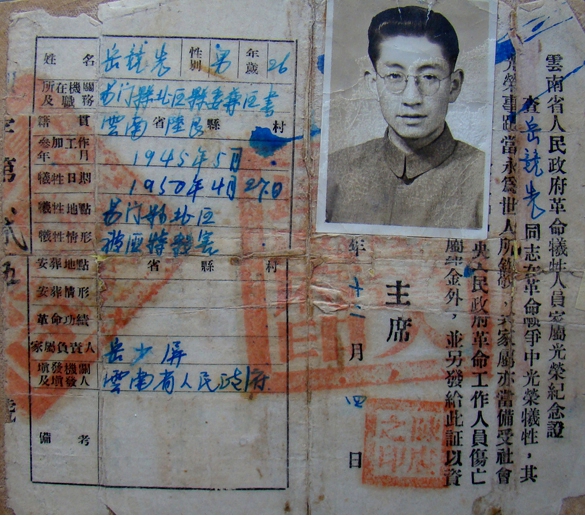 雲南省人民政府革命犧牲人員家屬光榮紀念證
查岳龍裳同志在革命戰爭中光榮犧牲，其
光榮事蹟當永為世人所 其家屬亦當備受社會
央人民政府革命工作人員傷亡
金外，並另發給此証以資
主席
年十二月四日
之印
姓名 岳龍裳 性別 男 年歲 26
所在機關及職務 易门縣北區縣委兼區書
籍貫 雲南省陸良縣 村
參加工作年月 1945年5月
犧牲日期 1950年4月27日
犧牲地點 易门縣北區
犧牲情形
安葬地點 省 縣 村
安葬情形
革命功績
家屬負責人 岳少屏
填發機關及填發人 雲南省人民政府
備考
字第
號